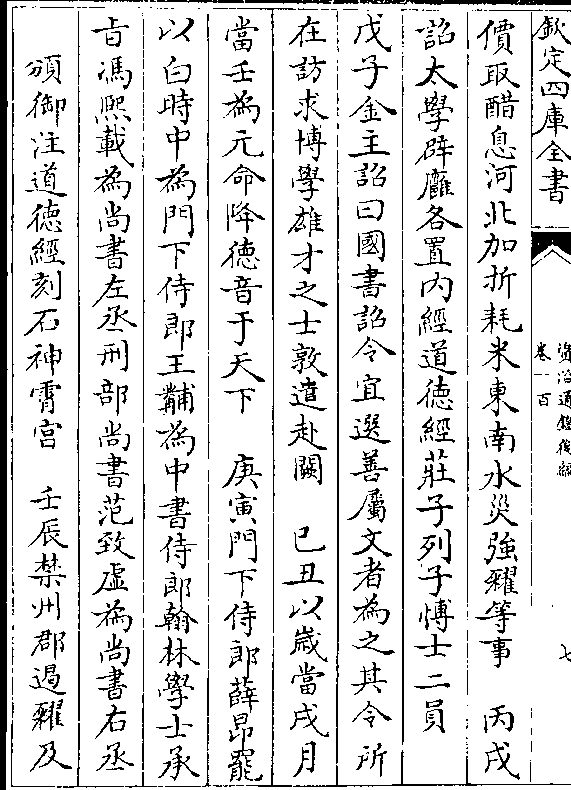 欽定四庫全書
資治通鑑後編
卷一百
七
價取醋息河北加折耗米東南水災強糴等事　丙戌
詔太學辟廱各置內經道德經莊子列子愽士二員
戊子金主詔曰國書詔令宜選善屬文者為之其令所
在訪求博學雄才之士敦遣赴闕　已丑以歲當戌月
當壬為元命降德音于天下　庚寅門下侍郎薛昂罷
以白時中為門下侍郎王黼為中書侍郎翰林學士承
㫖馮熙載為尚書左丞刑部尚書范致虛為尚書右丞
頒御注道德經刻石神霄宮　壬辰禁州郡遏糴及